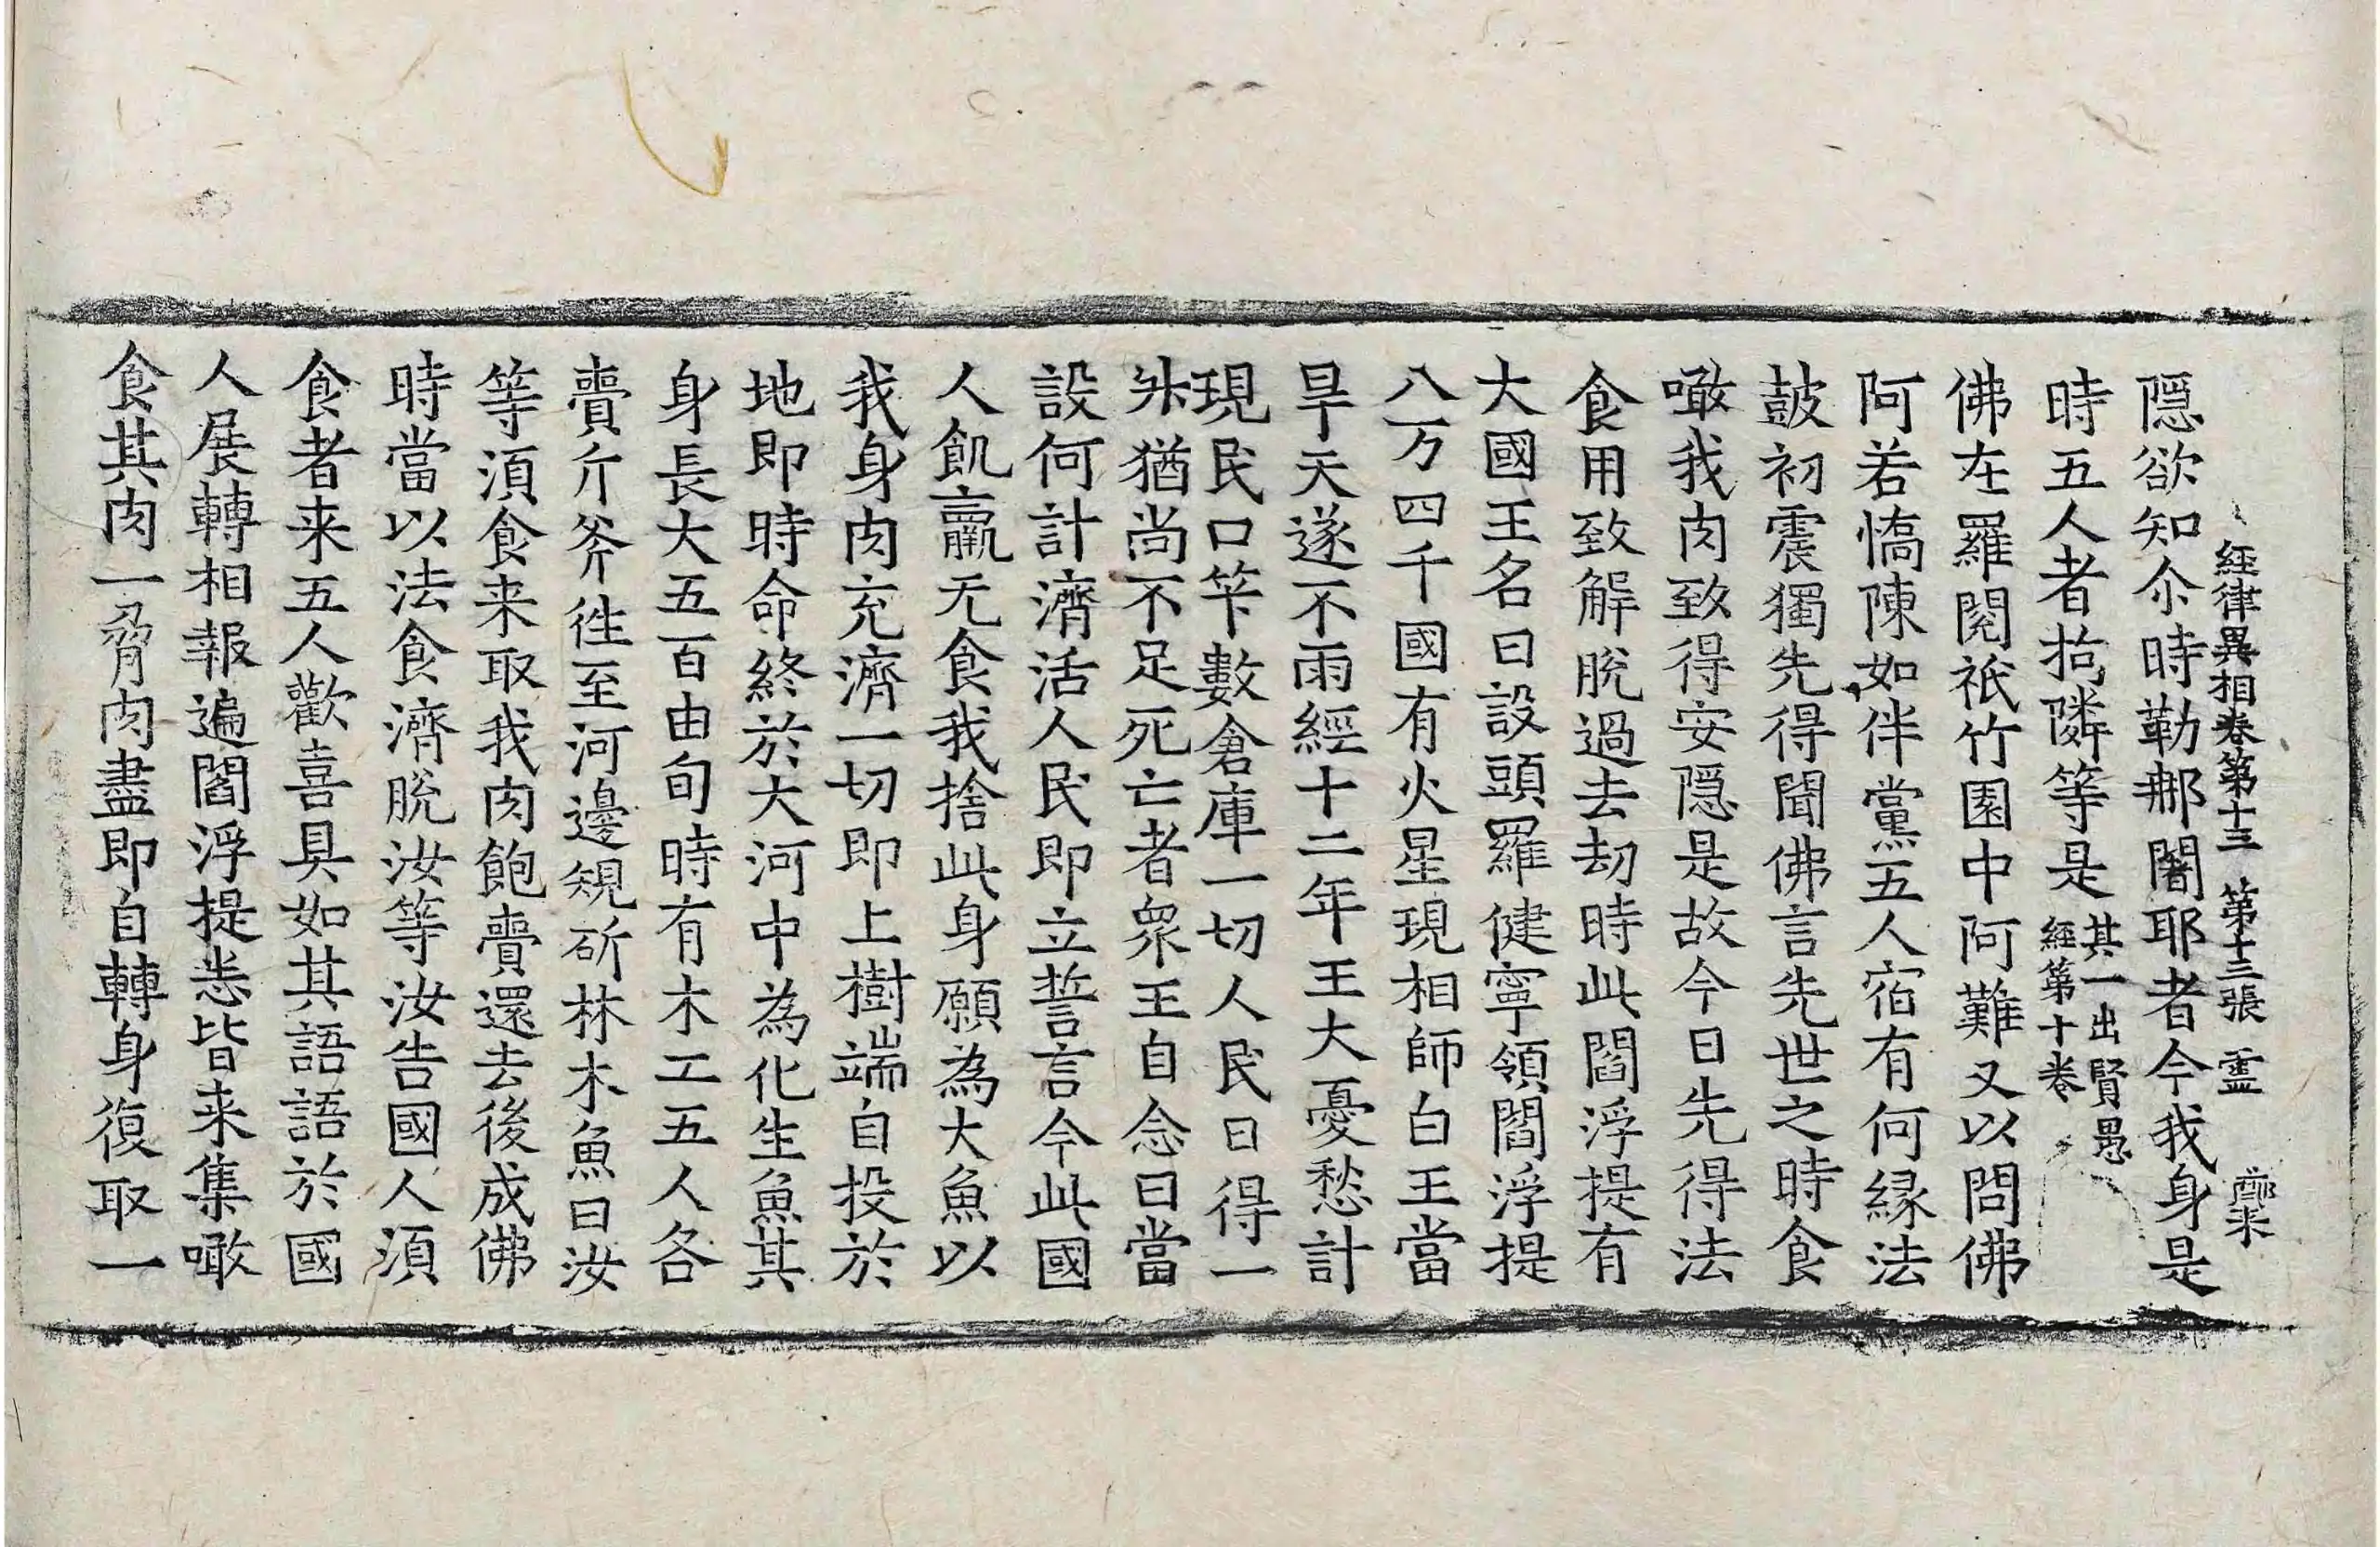 經律異相卷第十三　第十三張　霊
隠欲知尒時勒那闍耶者今我身是
時五人者拘隣等是其一出賢愚
經第十卷
佛在羅閱祇竹園中阿難又以問佛
阿若憍陳如伴黨五人宿有何緣法
鼓初震獨先得聞佛言先世之時食
噉我肉致得安隠是故今日先得法
食用致解脫過去劫時此閻浮提有
大國王名曰設頭羅健寧領閻浮提
八万四千國有火星現相師白王當
旱天遂不雨經十二年王大憂愁計
現民口筭數倉庫一切人民日得一
舛猶尚不足死亡者衆王自念曰當
設何計濟活人民即立誓言今此國
人飢羸无食我捨此身願為大魚以
我身肉充濟一切即上樹端自投於
地即時命終於大河中為化生魚其
身長大五百由旬時有木工五人各
賷斤斧徃至河邊規斫林木魚曰汝
等湏食来取我肉飽賷還去後成佛
時當以法食濟脫汝等汝告國人湏
食者来五人歡喜具如其語語於國
人展轉相報遍閻浮提悉皆来集噉
食其肉一脅肉盡即自轉身復取一